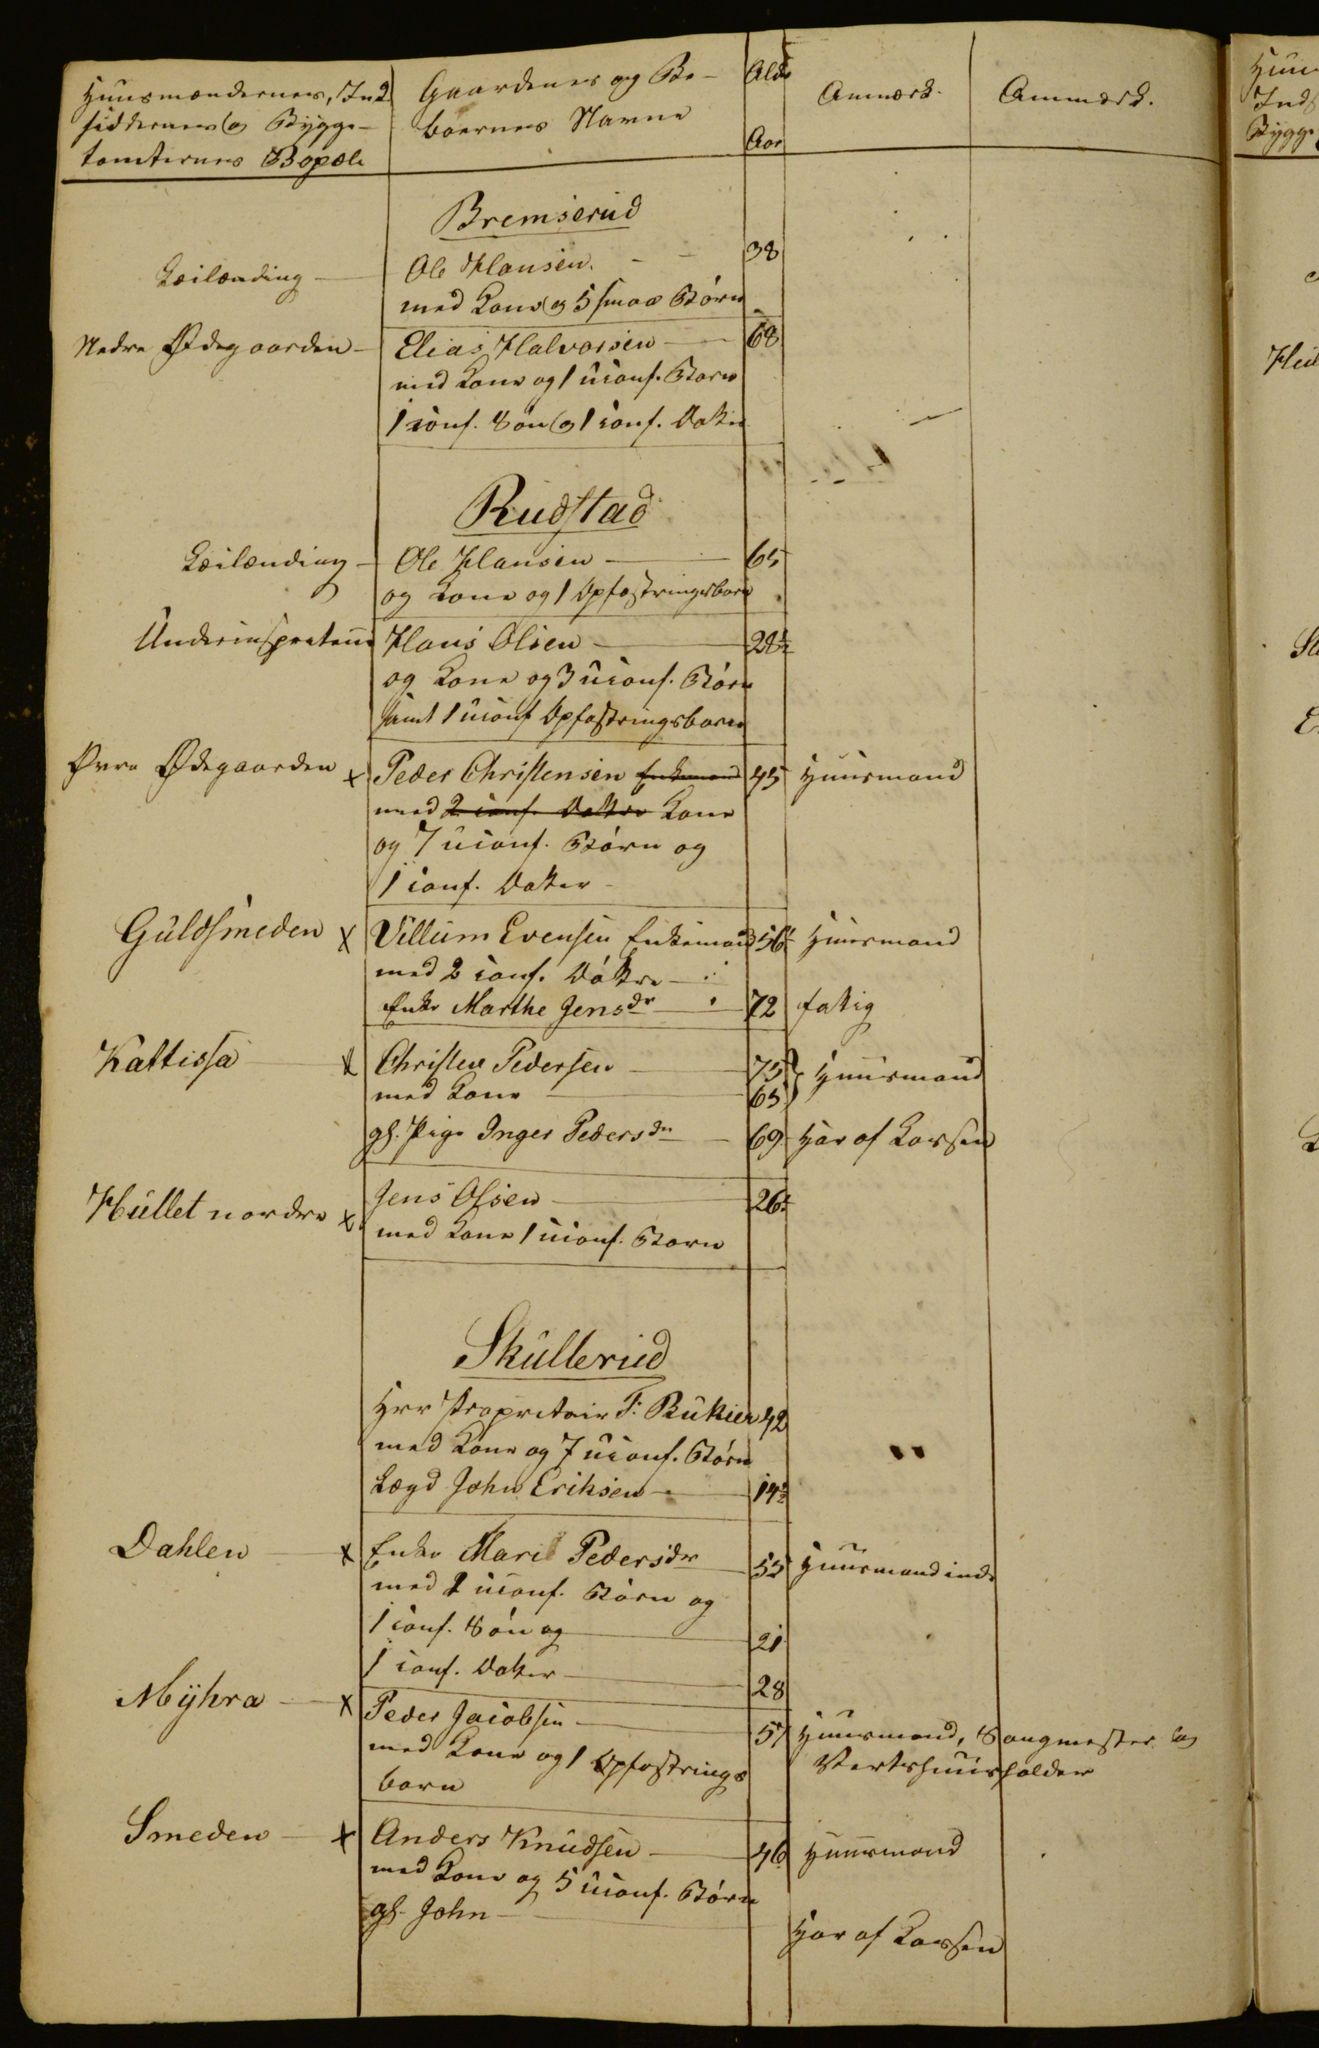 Huusmændernes, Ind-
siddernes og Bygge-
tomternes Bopæle
Gaardenes og Be-
boernes Navne
Alde
Aar
Anmærk.
Anmærk.
Bremserud
Leilænding — Ole Hansen. 38
med Kone og 5 smaae Børn
Nedre Ødegaarden — Elias Halvorsen — 68
med Kone og 1 uconf. Barn
1 conf. Søn og 1 conf. Datter
Rudstad
Leilænding — Ole Hansen — 65
og Kone og 1 Opfostringsbarn
Hans Olsen — 28½
og Kone og 3 uconf. Børn
samt 1 uconf Opfostringsbarn
Øvre Ødegaarden x Peder Christensen Enkemand 45 Huusmand
med 2 conf. Døttre Kone
og 7 uconf. Børn og
1 conf. Datter
Guldsmeden x Villum Evensen Enkemand 56½ Huusmand
med 2 conf. Døttre
Enke Marthe Jensdr — 72 fattig
Kattissa x Christen Pedersen — 75 } Huusmand
med Kone — 65
gl. Pige Inger Pedersdr — 69 Har af Kassen
Hullet nordre x Jens Olsen — 26½
med Kone 1 uconf. Barn
Skullerud
Hrr Propritair F: 42
med Kone og 7 uconf. Børn
Lægd John Eriksen — 14½
Dahlen x Enke Mari Pedersdr — 55 Huusmandinde
med 2 uconf. Børn og
1 conf. Søn og — 21
1 conf. Datter — 28
Myhra — x Peder Jacobsen — 57 Huusmand, Saugmester og
med Kone og 1 Opfostrings Vertshuusholder
barn
Smeden — x Anders Knudsen — 46 Huusmand
med Kone og 5 uconf. Børn
gl. John — Har af Kassen